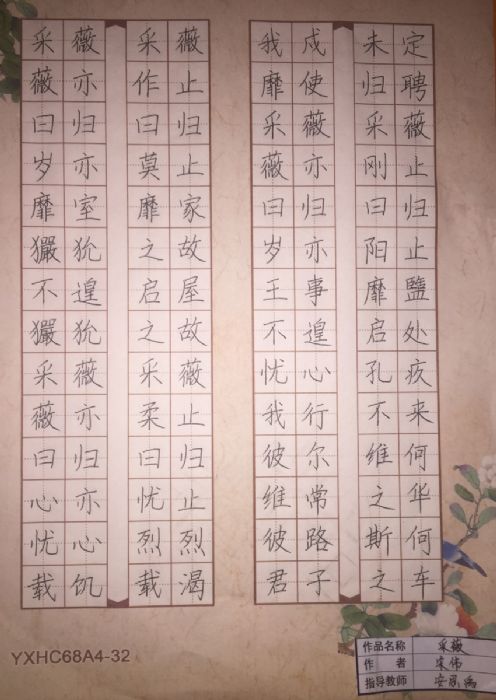 采薇采薇
薇亦作止
曰归曰归
岁亦莫止
靡室靡家
玁狁之故
不遑启屋
玁狁之故
采薇采薇
薇亦柔止
曰归曰归
心亦忧止
忧心烈烈
载饥载渴
我戍未定
靡使归聘
采薇采薇
薇亦刚止
曰归曰归
岁亦阳止
王事靡盬
不遑启处
忧心孔疚
我行不来
彼尔维何
维常之华
彼路斯何
君子之车
YXHC68A4-32
作品名称 采薇
作者 宋伟
指导教师